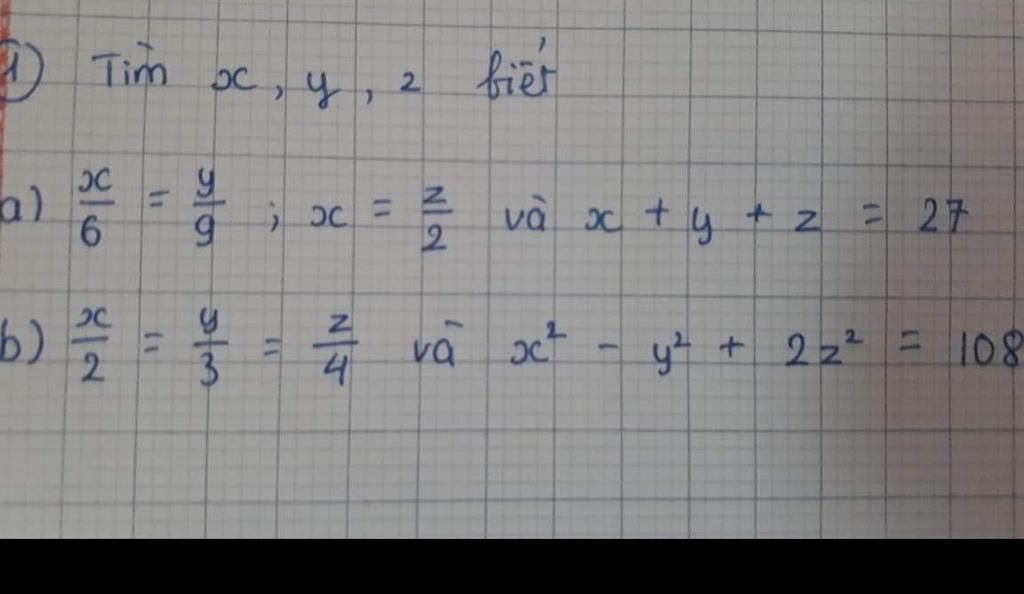 1) Tìm x, y, z biết
a) x/6 = y/9 ; x = z/2 và x + y + z = 27
b) x/2 = y/3 = z/4 và x² - y² + 2z² = 108